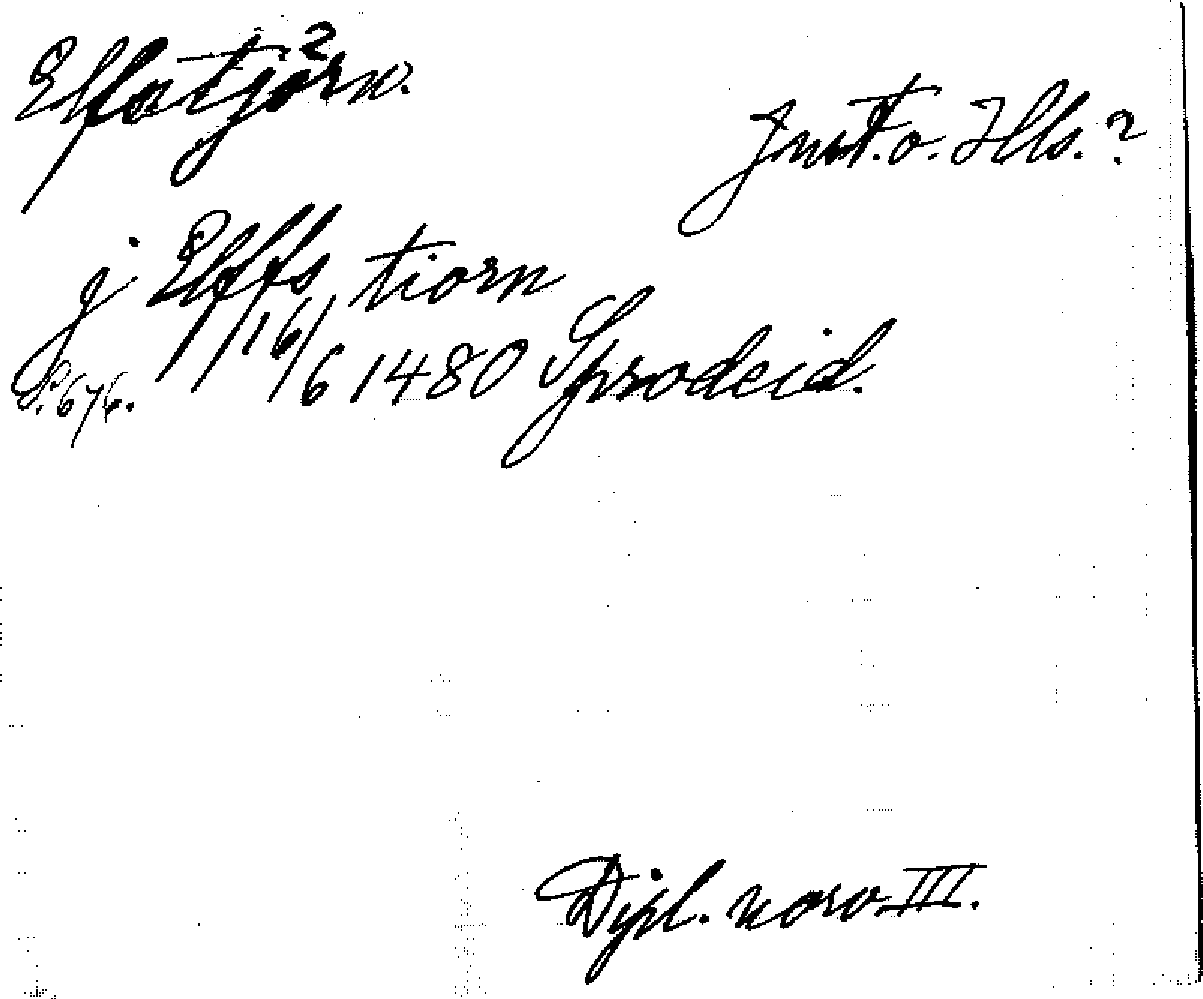 Elfstjörn.?
Jmt. o. Hls.?
j Elffs tiorn
S. 676. 16/6 1480 Sprodeid.
Dipl. norv. III.